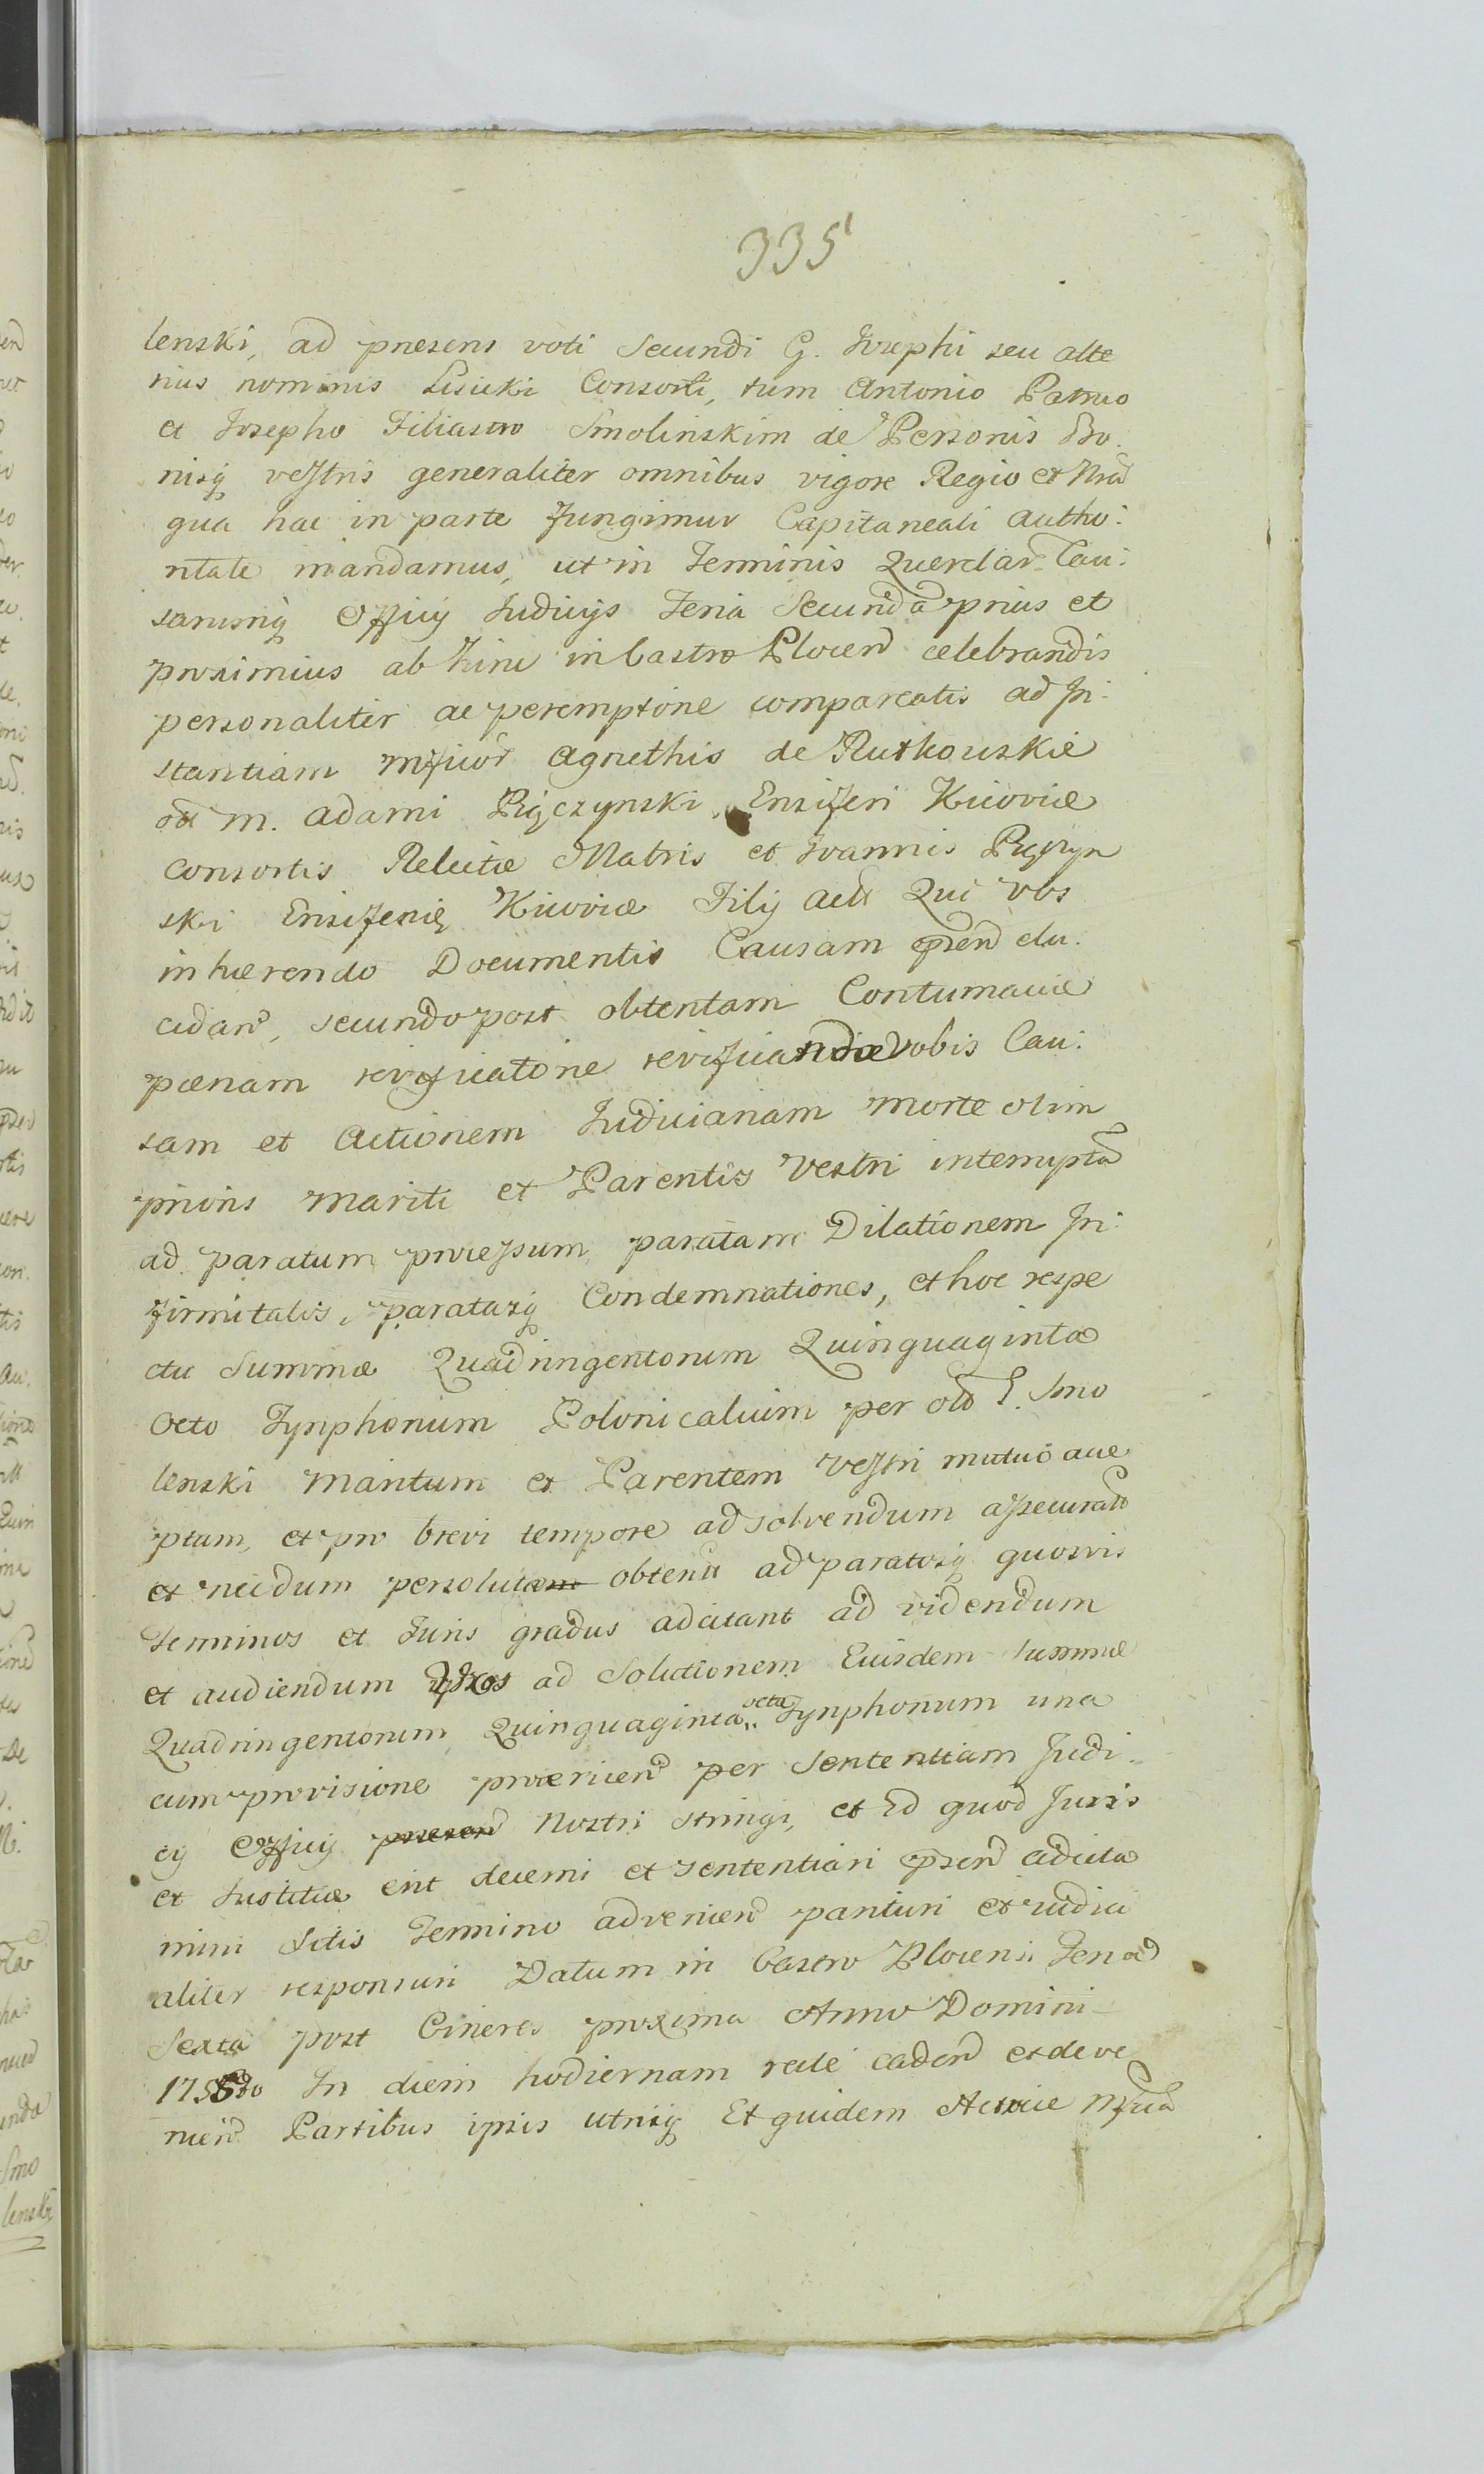 335
lenski, ad præsens voti Secundi G. Josephi seu alte
rius nominis Lisicki Consorti, tum Antonio Patruo
et Josepho Filiastro Smolinskim de Personis Bo:
nisq vestris generaliter omnibus vigore Regio et Nrã
qua hac in parte fungimur Capitaneali Autho:
ritate mandamus, ut in Terminis Querelar Cau:
sarumq Officÿ Judicÿs Feria Secunda prius et
proximius ab hinc in Castro Plocen celebrandis
personaliter ac peremptorie compareatis ad In:
stantiam Mficor Agnethis de Rutkowskie
olî M. Adami Pigczynski Ensiferi Kiioviæ
Consortis Relictæ Matris et Joannis Pigczyn
ski Ensiferiq Kiioviæ Filÿ Act Qui vos
inhærendo Documentis Causam præn elu:
cidan, secundo post obtentam Contumaciæ
pænam revificatorie revificandæ vobis Cau:
sam et Actionem Judiciariam morte olim
prioris mariti et Parentis Vestri interrupta
ad paratum processum paratam Dilationem In:
firmitatis, paratasq Condemnationes, et hoc respe
ctu Summæ Quadringentorum Quinquaginta
Octo Tynphonium Polonicalium per olî G. Smo
lenski Maritum et Parentem Vestri mutuo acce
ptam, et pro brevi tempore ad solvendum assecurat
et necdum persolutam obtent ad paratosq quosvis
Terminos et Juris gradus adcitant ad videndum
et audiendum ad Solutionem Eiusdem Summæ
Quadringentorum Quinquaginta octo Tynphonum una
cum provisione provenien per Sententiam Judi:
cÿ Officÿ presen Nostri stringi, et Id quod Juris
et Justitiæ erit decerni et sententiari præn adcita
mini Sitis Termino advenien parituri et iudici
aliter responsuri Datum in Castro Plocensi Feria
Sexta post Cineres proxima Anno Domini
In diem hodiernam recte caden et deve
nien Partibus ipsis utrisq Et quidem Actrice Mfica